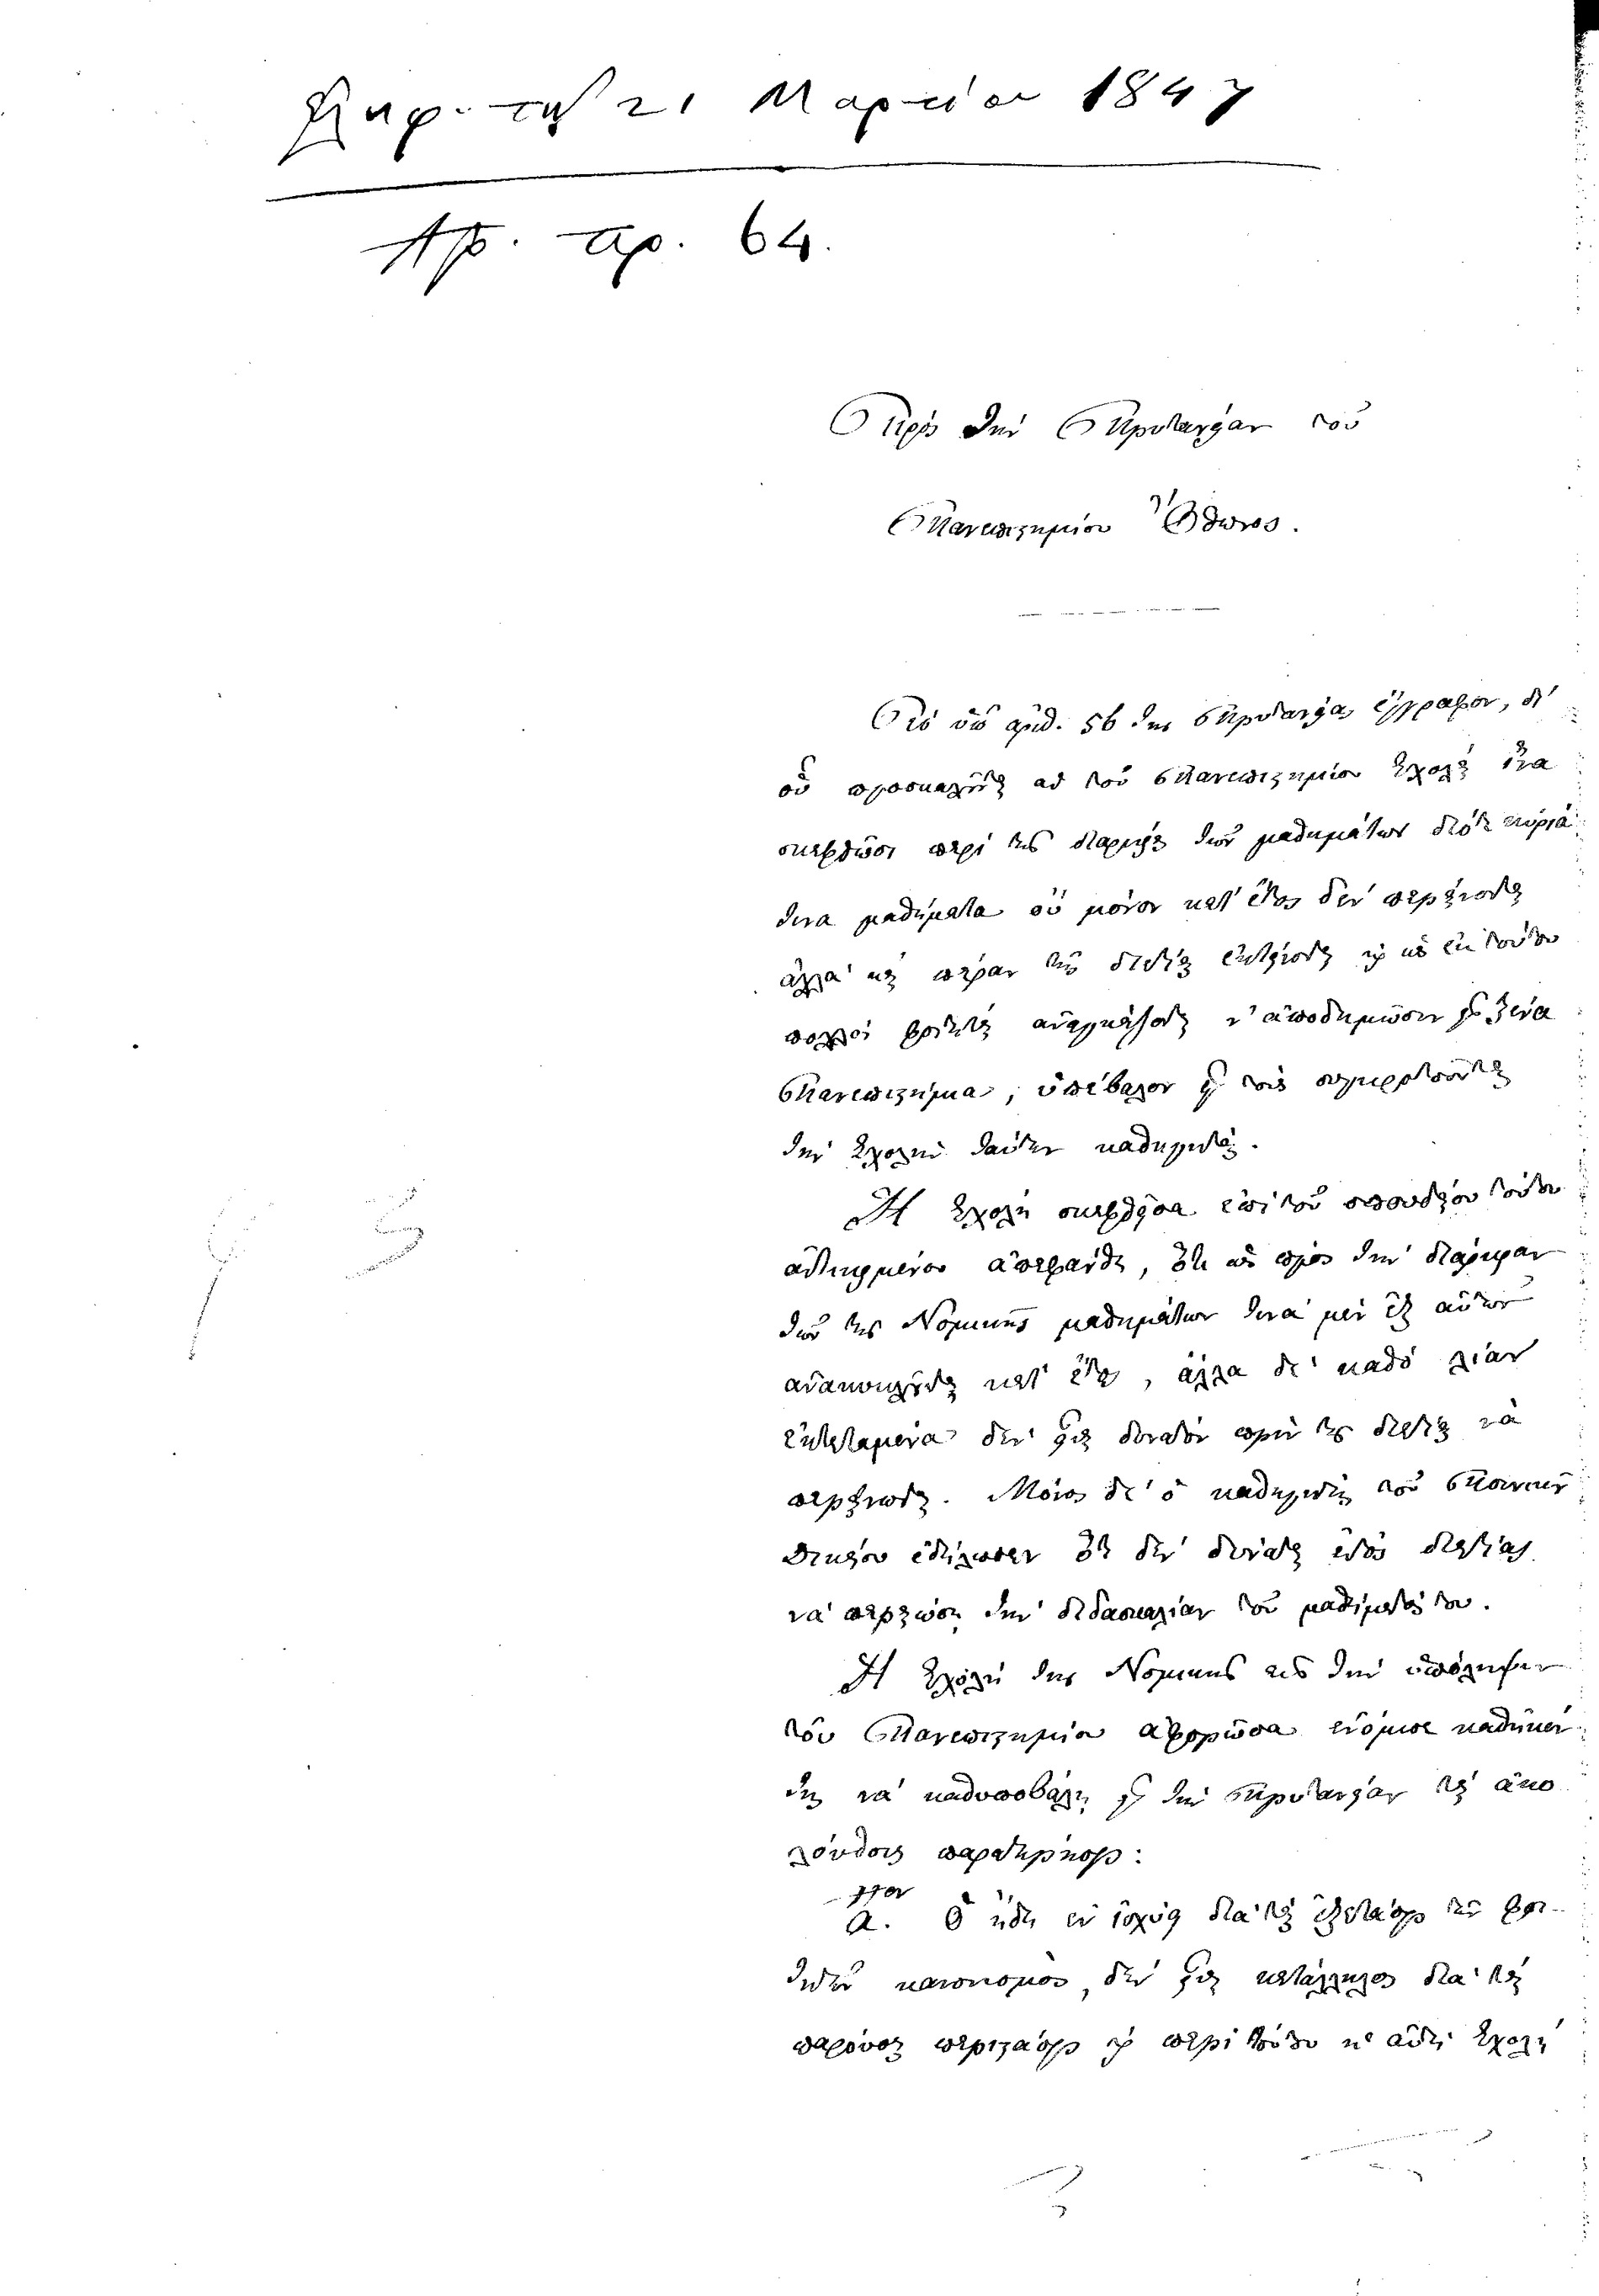 Παρ. τῇ 21 Μαρτίου 1847
Αρ. πρ. 64.
Πρὸς τὴν Πρυτανείαν τοῦ
Πανεπιστημίου Ὄθωνος.
Τὸ ὑπ' ἀριθ. 56 τῆς Πρυτανείας ἔγγραφον, δι'
οὗ προσκαλεῖται ἡ τοῦ Πανεπιστημίου Σχολὴ ἵνα
σκεφθῶσι περὶ τῆς διαρκείας τῶν μαθημάτων διότι κύρια
τινα μαθήματα οὐ μόνον κατ' ἔτος δὲν περαιοῦνται
ἀλλὰ καὶ πέραν τῆς διετίας ἐκτείνονται καὶ ὡς ἐκ τούτου
πολλοὶ φοιτηταὶ ἀναγκάζονται ν' ἀποδημῶσιν εἰς ξένα
Πανεπιστήμια, ὑπέβαλον εἰς τοὺς συγκροτοῦντας
τὴν Σχολὴν ταύτην καθηγητάς.
Ἡ Σχολὴ σκεφθεῖσα ἐπὶ τοῦ σπουδαίου τούτου
ἀντικειμένου ἀπεφάνθη, ὅτι ὡς πρὸς τὴν διάρκειαν
τῶν τῆς Νομικῆς μαθημάτων τινὰ μὲν ἐξ αὐτῶν
ἀνακυκλοῦνται κατ' ἔτος, ἄλλα δὲ καθὸ λίαν
ἐκτεταμένα δὲν εἶναι δυνατὸν πρὶν τῆς διετίας νὰ
περαιωθῶσι. Μόνος δὲ ὁ καθηγητὴς τοῦ Ποινικοῦ
Δικαίου ἐδήλωσεν ὅτι δὲν δύναται ἐντὸς διετίας
νὰ περαιώσῃ τὴν διδασκαλίαν τοῦ μαθήματός του.
Ἡ Σχολὴ τῆς Νομικῆς εἰς τὴν ὑπόληψιν
τοῦ Πανεπιστημίου ἀφορῶσα ἐνόμισε καθῆκον
της νὰ καθυποβάλῃ εἰς τὴν Πρυτανείαν τὰς ἀκο
λούθους παρατηρήσεις:
α.ον Ὁ ἤδη ἐν ἰσχύϊ διὰ τὰς ἐξετάσεις τῶν φοι-
τητῶν κανονισμὸς δὲν εἶναι κατάλληλος διὰ τὰς
παρούσας περιστάσεις καὶ περὶ τούτου ἡ αὐτὴ Σχολὴ